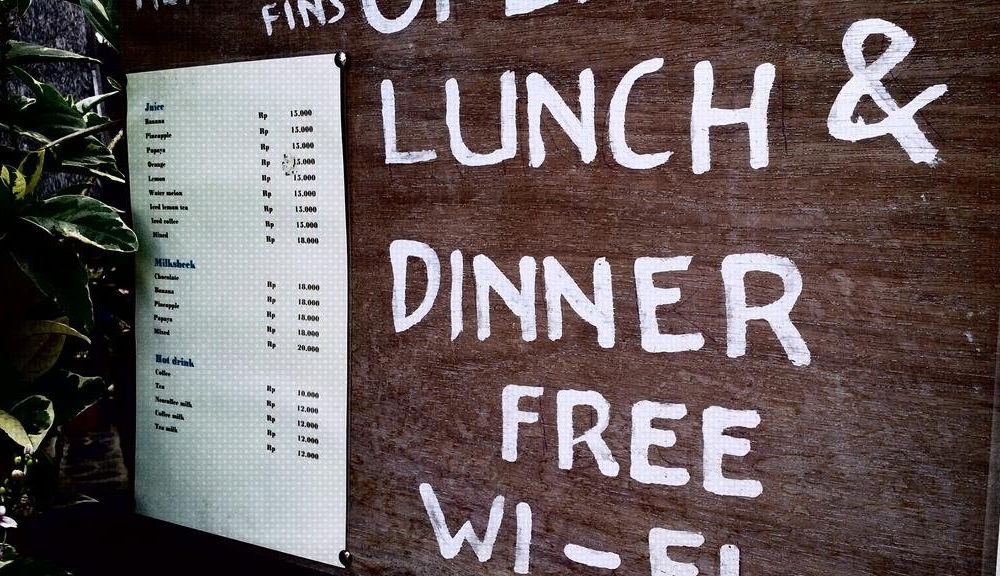 FINS
LUNCH &
DINNER
FREE
WI-FI
Juice
Banana Rp 15.000
Pineapple Rp 15.000
Papaya Rp 15.000
Orange Rp 15.000
Lemon Rp 15.000
Water melon Rp 15.000
Iced lemon tea Rp 15.000
Iced coffee Rp 15.000
Mixed Rp 18.000
Milksheck
Chocolate Rp 18.000
Banana Rp 18.000
Pineapple Rp 18.000
Papaya Rp 18.000
Mixed Rp 20.000
Hot drink
Coffee Rp 10.000
Tea Rp 12.000
Nescoffee milk Rp 12.000
Coffee milk Rp 12.000
Tea milk Rp 12.000